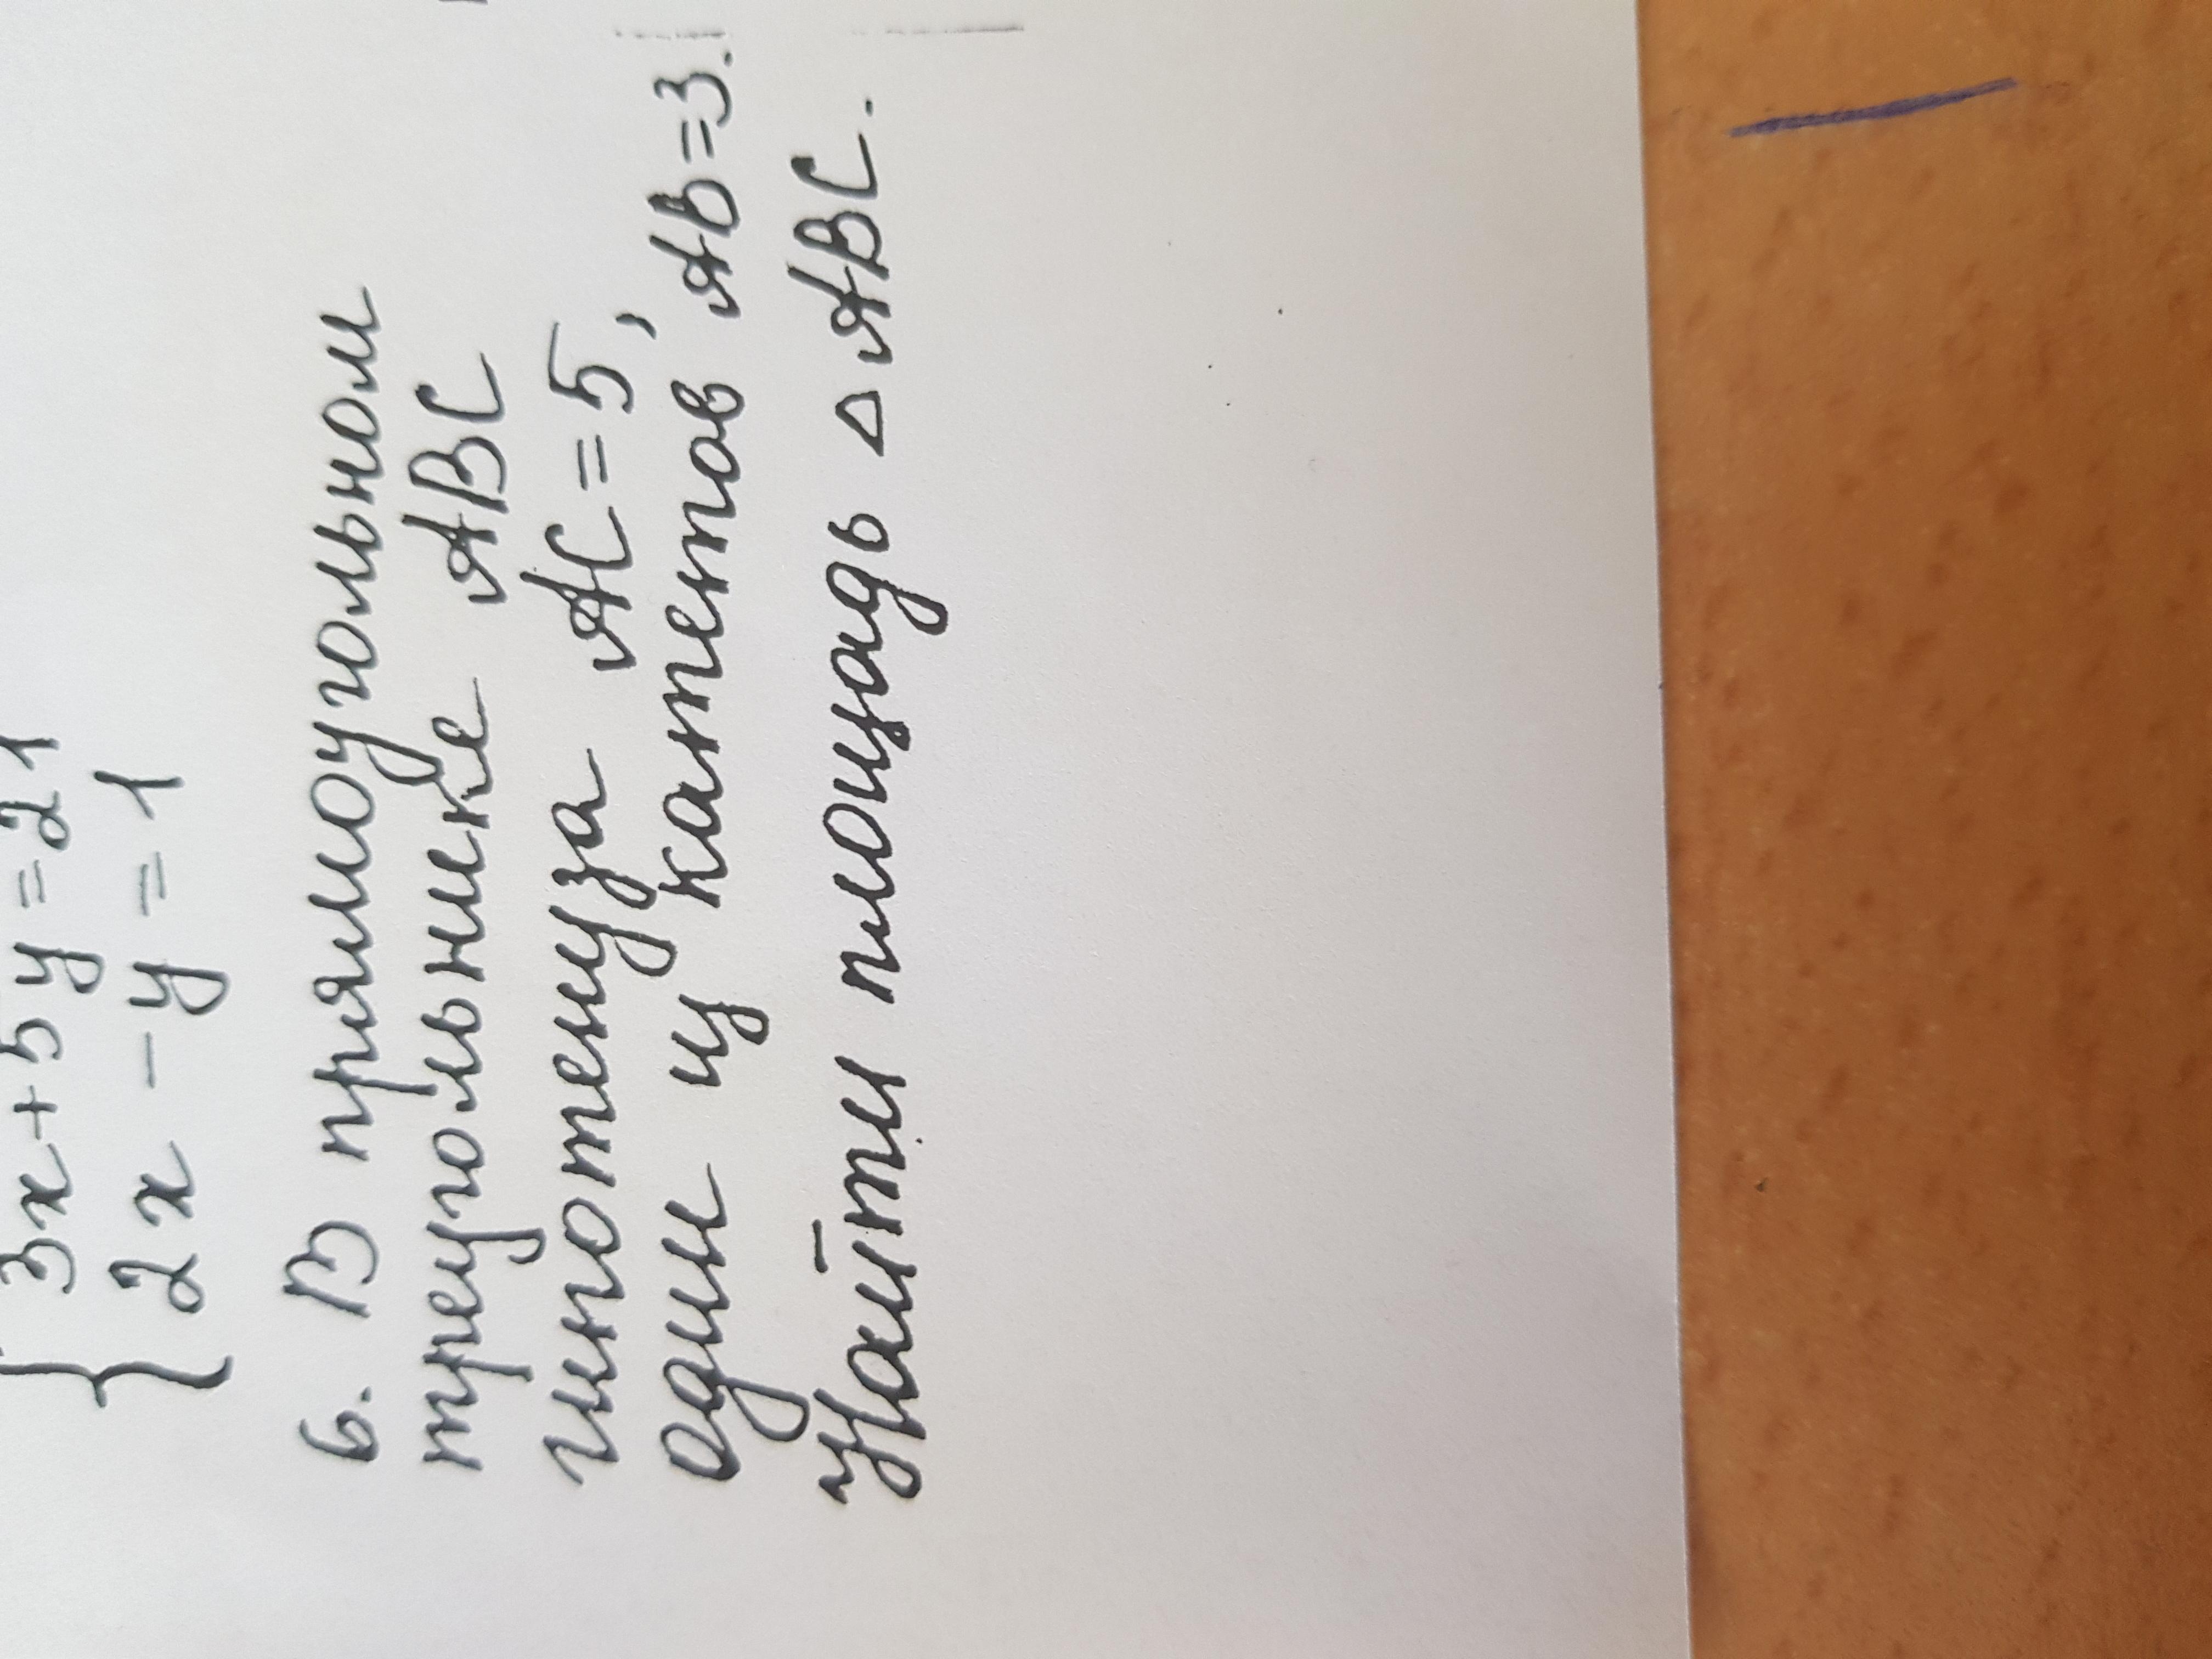 3x+5y=21
2x-y=1
6. В прямоугольном
треугольнике ABC
гипотенуза AC=5,
один из катетов AB=3.
Найти площадь △ABC.